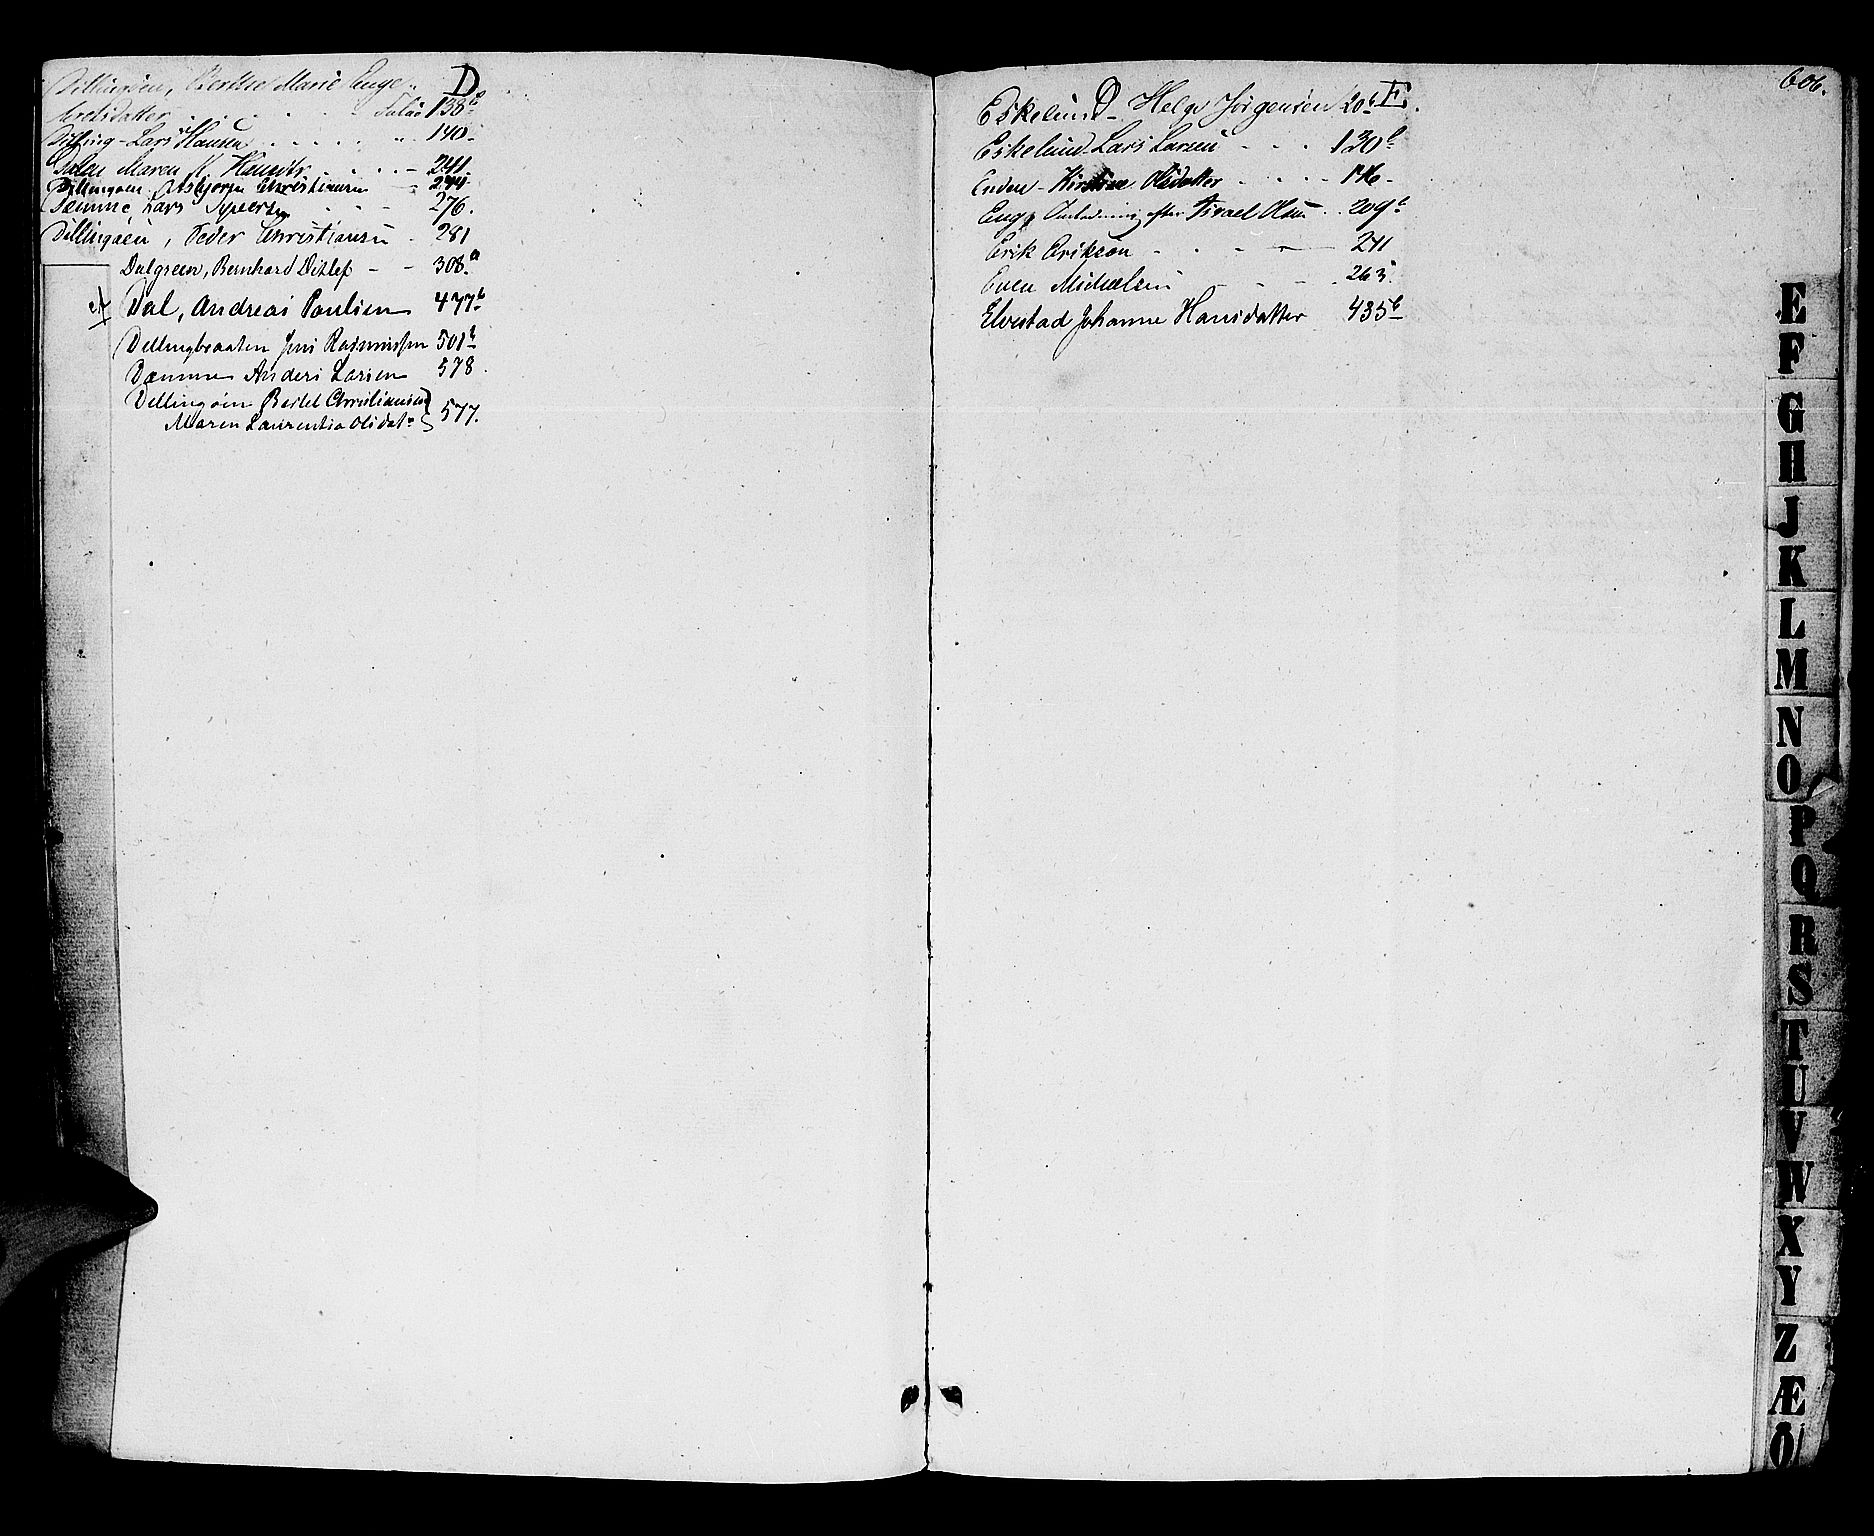 D
Dillingöen, Berthe Marie Enge
Arvesdatter . . . . . Folio 138 b
Dilling - Lars Hansen . . . . . " 140 -
Dalen Maren H. Hansdtr . . . . - 241
Dillingöen Asbjørn Christiansen - 244
Dæmme, Lars Syversen - - - 276.
Dillingöen, Peder Christiansen - 281
Dalgreen, Bernhard Ditlef - - 308. a
Dal, Andreas Paulsen 477 b
Dillingbraaten Jens Rasmussen 501 b
Dæmme Anders Larsen 578
Dillingöen Bertel Christiansen
Maren Laurentia Olsdatr } 577.
606.
E.
Eskelund - Helge Jörgensen 20 b
Eskelund - Lars Larsen - - - 130 b
Enden - Kirstine Olsdatter - - - - 176 -
Enge efter Israel Olsen . . 209 b
Erik Eriksen - - - - 241
Even Michelsen - - - 263.
Elvestad Johanne Hansdatter 435 b
E
F
G
H
J
K
L
M
N
O
P
Q
R
S
T
U
V
W
X
Y
Z
Æ
Ö